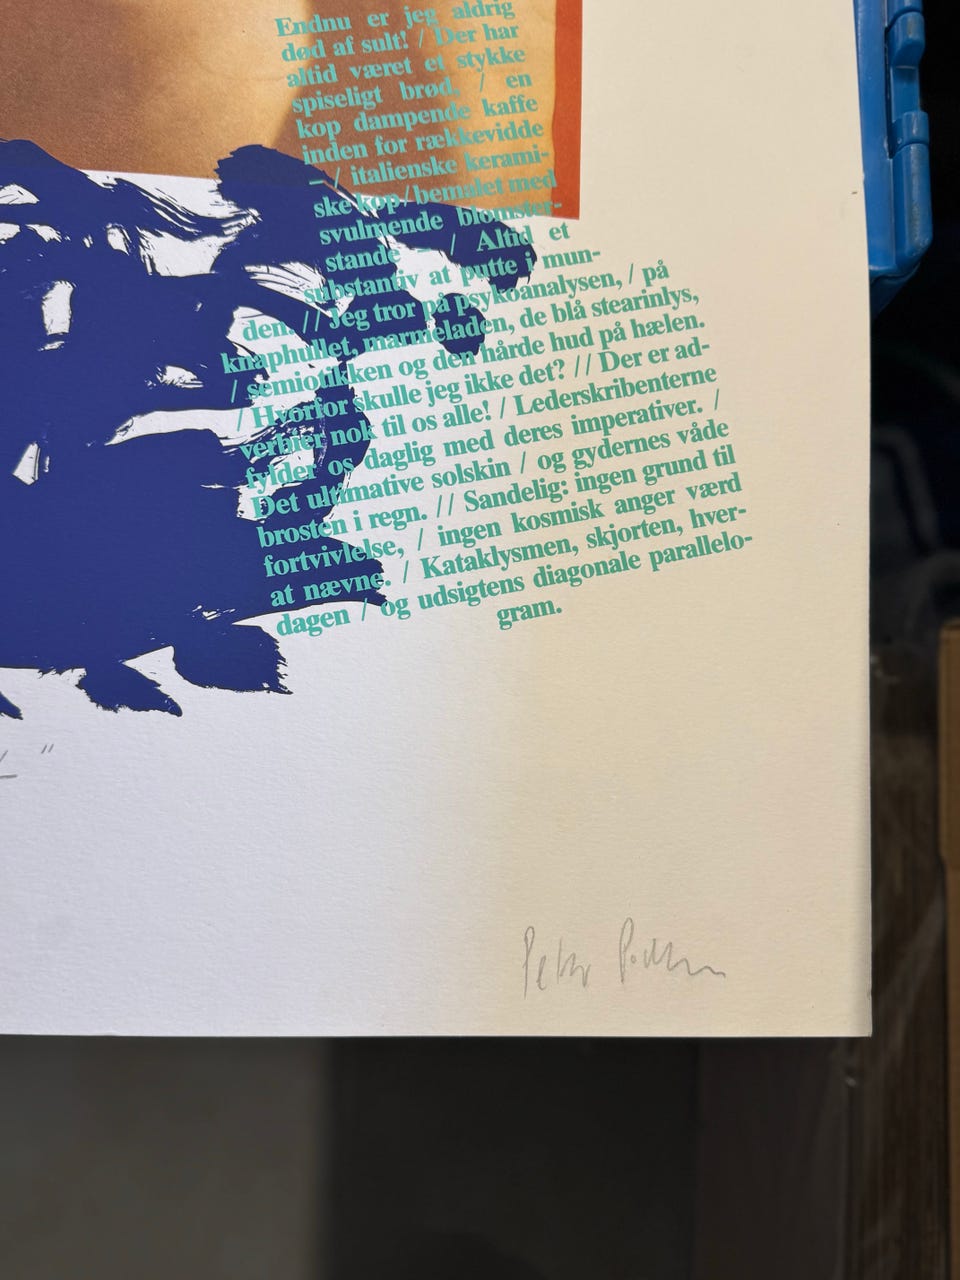 Endnu er jeg aldrig
død af sult! / Der har
altid været et stykke
spiseligt brød, / en
kop dampende kaffe
inden for rækkevidde
– / italienske kerami-
ske kop / bemalet med
svulmende blomster-
stande – / Altid et
substantiv at putte i mun-
den. // Jeg tror på psykoanalysen, / på
knaphullet, marmeladen, de blå stearinlys,
/ semiotikken og den hårde hud på hælen.
/ Hvorfor skulle jeg ikke det? // Der er ad-
verbier nok til os alle! / Lederskribenterne
fylder os daglig med deres imperativer. /
Det ultimative solskin / og gydernes våde
brosten i regn. // Sandelig: ingen grund til
fortvivlelse, / ingen kosmisk anger værd
at nævne. / Kataklysmen, skjorten, hver-
dagen / og udsigtens diagonale parallelo-
gram.
Peter